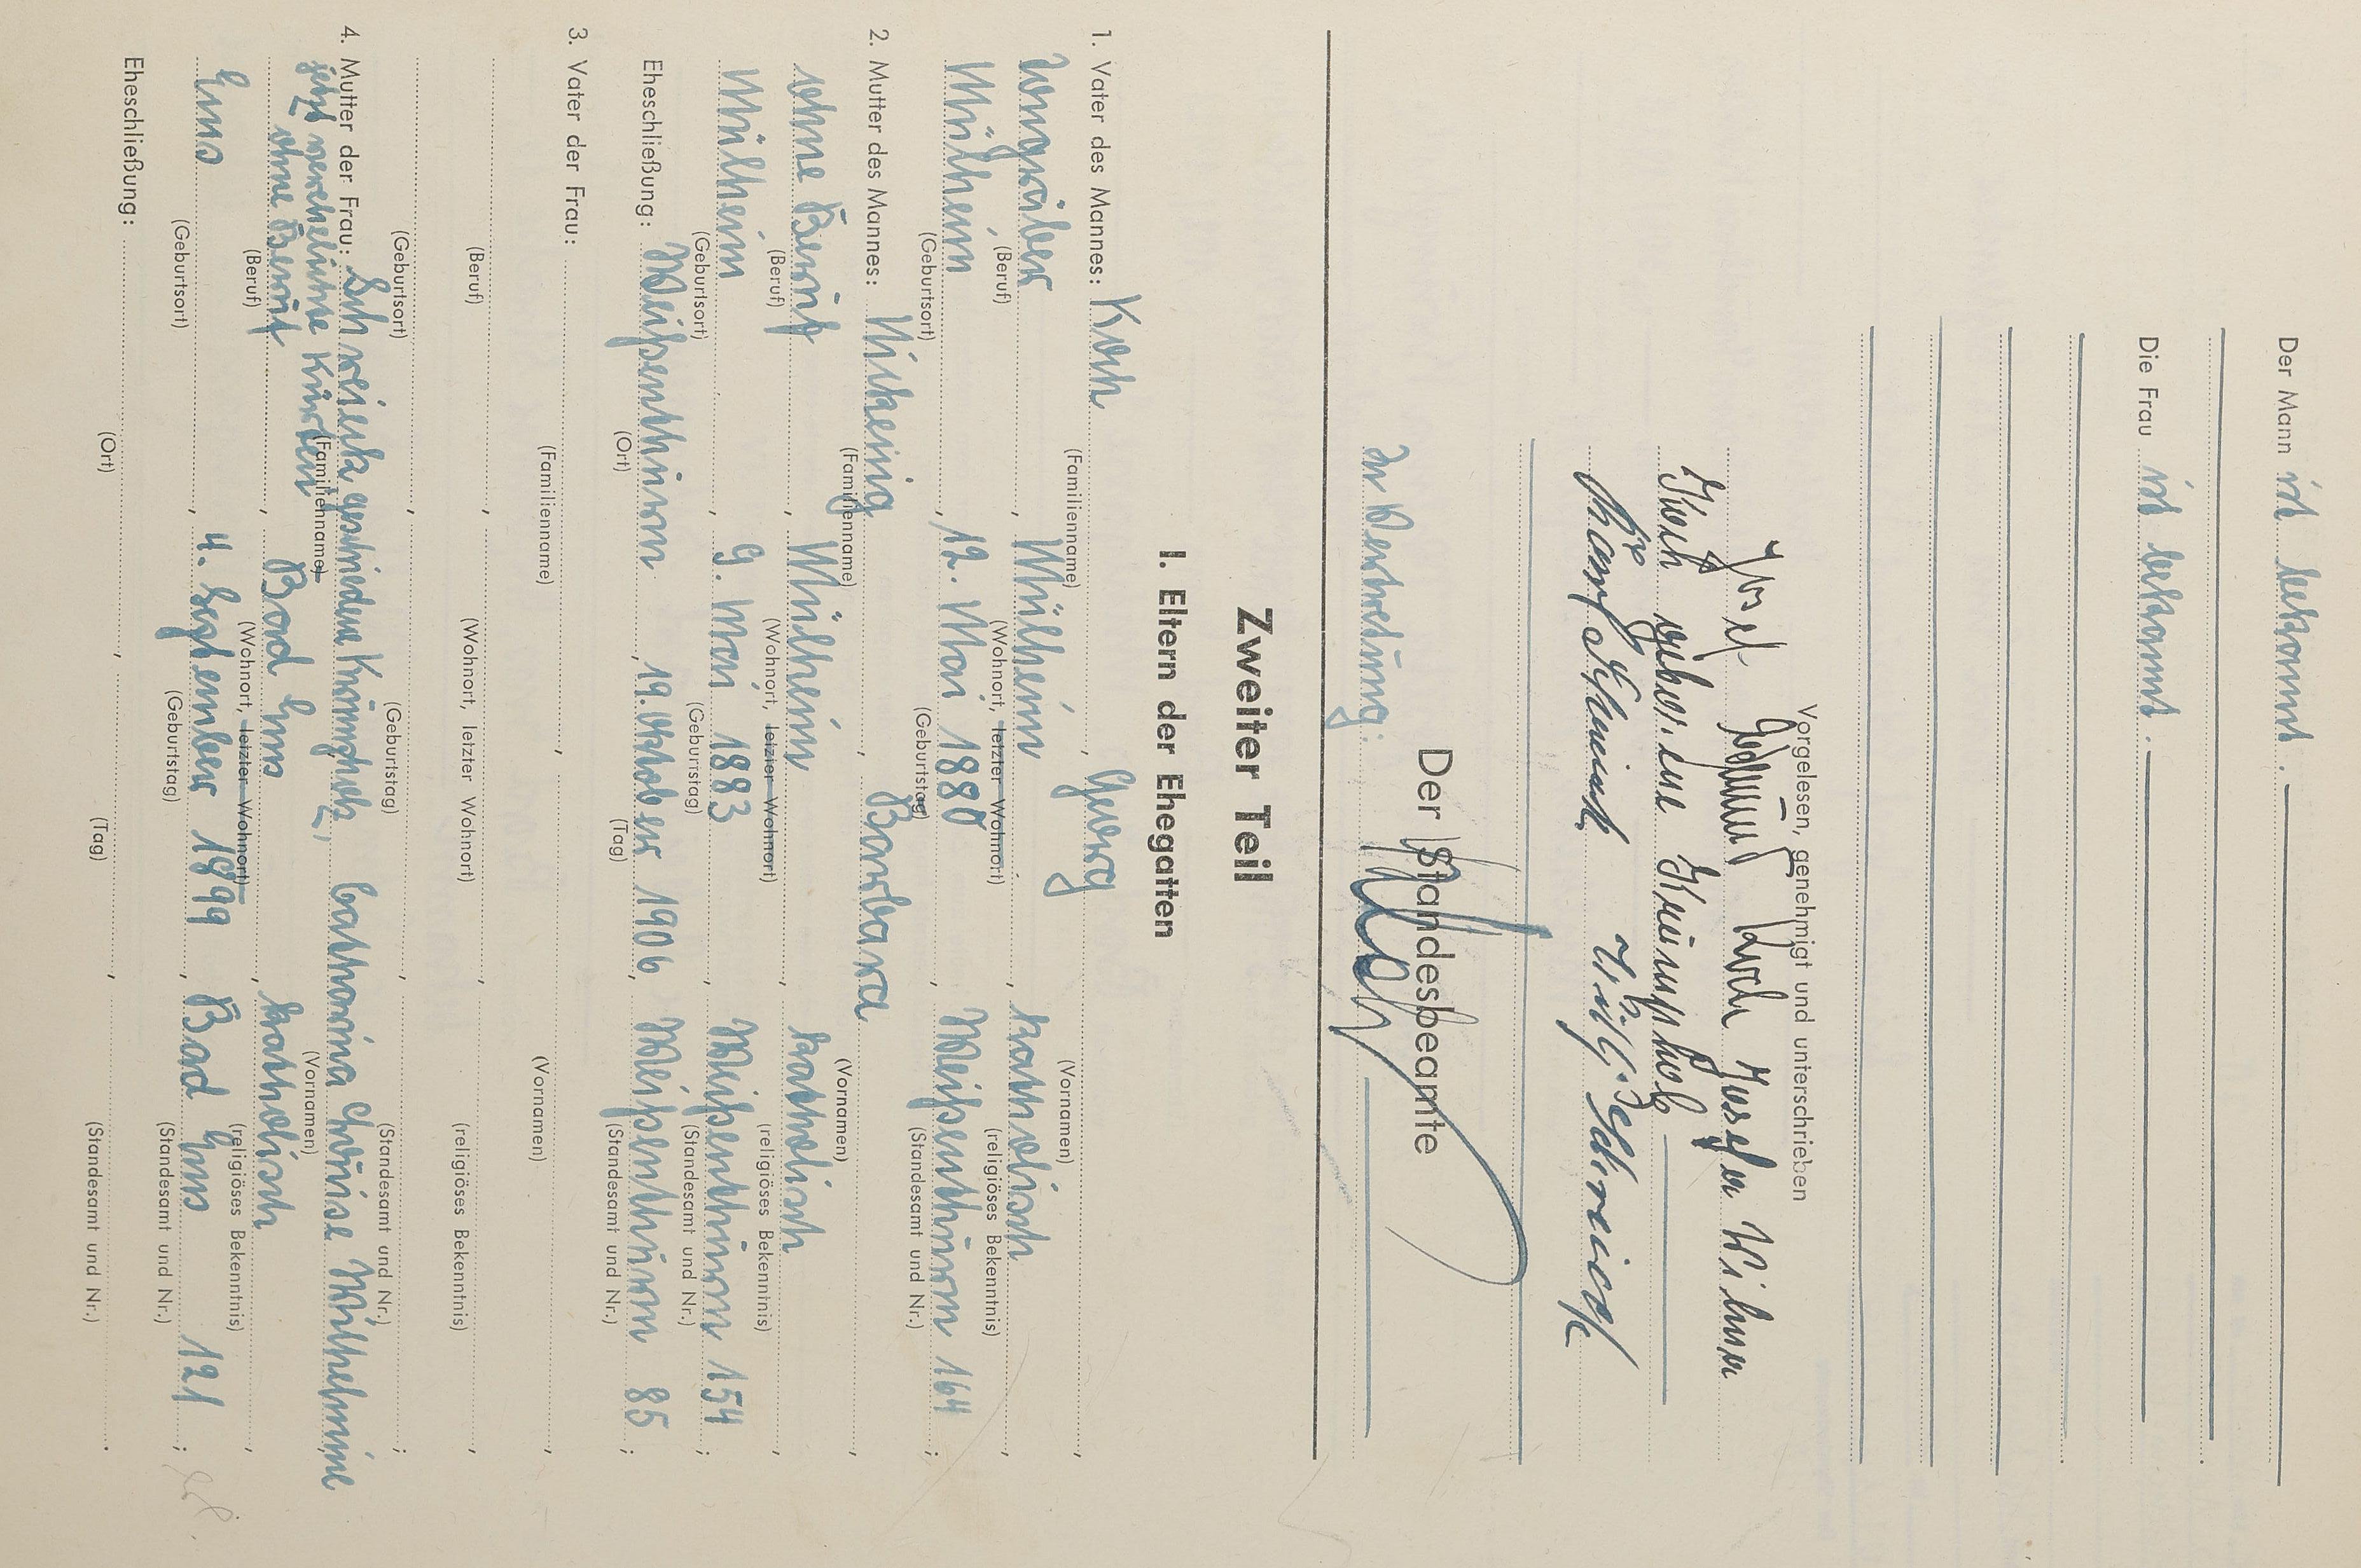 Der Mann ist bekannt.
Die Frau ist bekannt.
Vorgelesen, genehmigt und unterschrieben
Josef Koch
Koch geborene Krümpholz
In Vertretung:
Der Standesbeamte
Zweiter Teil
I. Eltern der Ehegatten
1. Vater des Mannes: Koch, Georg
(Familienname) (Vornamen)
, Mülheim, katholisch,
(Beruf) (Wohnort, letzter Wohnort) (religiöses Bekenntnis)
Mülheim, 12. Mai 1880, Weißenthurm 164;
(Geburtsort) (Geburtstag) (Standesamt und Nr.)
2. Mutter des Mannes: Nickenig, Barbara,
(Familienname) (Vornamen)
ohne Beruf, Mülheim, katholisch,
(Beruf) (Wohnort, letzter Wohnort) (religiöses Bekenntnis)
Mülheim, 9. Mai 1883, Weißenthurm 154;
(Geburtsort) (Geburtstag) (Standesamt und Nr.)
Eheschließung: Weißenthurm, 19. Oktober 1906, Weißenthurm 85;
(Ort) (Tag) (Standesamt und Nr.)
3. Vater der Frau: , ,
(Familienname) (Vornamen)
, , ,
(Beruf) (Wohnort, letzter Wohnort) (religiöses Bekenntnis)
, , ;
(Geburtsort) (Geburtstag) (Standesamt und Nr.)
4. Mutter der Frau: Schreick geschiedene Krümpholz, Catharina Luise Wilhelmine
jetzt verehelichte
(Familienname) (Vornamen)
ohne Beruf, Bad Ems, katholisch,
(Beruf) (Wohnort, letzter Wohnort) (religiöses Bekenntnis)
Ems, 4. September 1899, Bad Ems 121;
(Geburtsort) (Geburtstag) (Standesamt und Nr.)
Eheschließung: , , .
(Ort) (Tag) (Standesamt und Nr.)